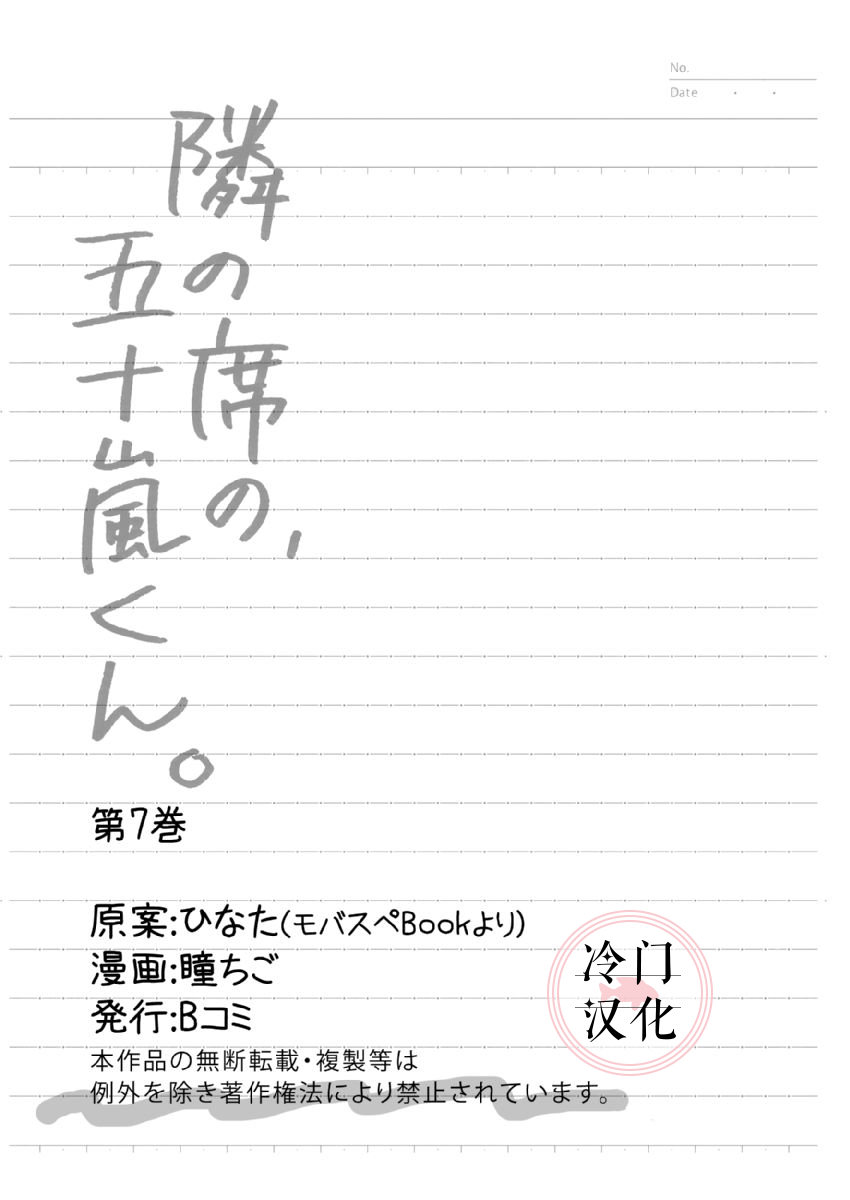 No.
Date
隣の席の、
五十嵐くん。
第7巻
原案:ひなた(モバスペBookより)
漫画:瞳ちご
発行:Bコミ
本作品の無断転載・複製等は
例外を除き著作権法により禁止されています。
冷门
汉化